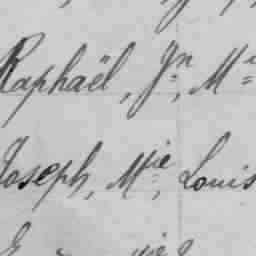 Raphaël, Jn, M
Joseph, Mie, Louis